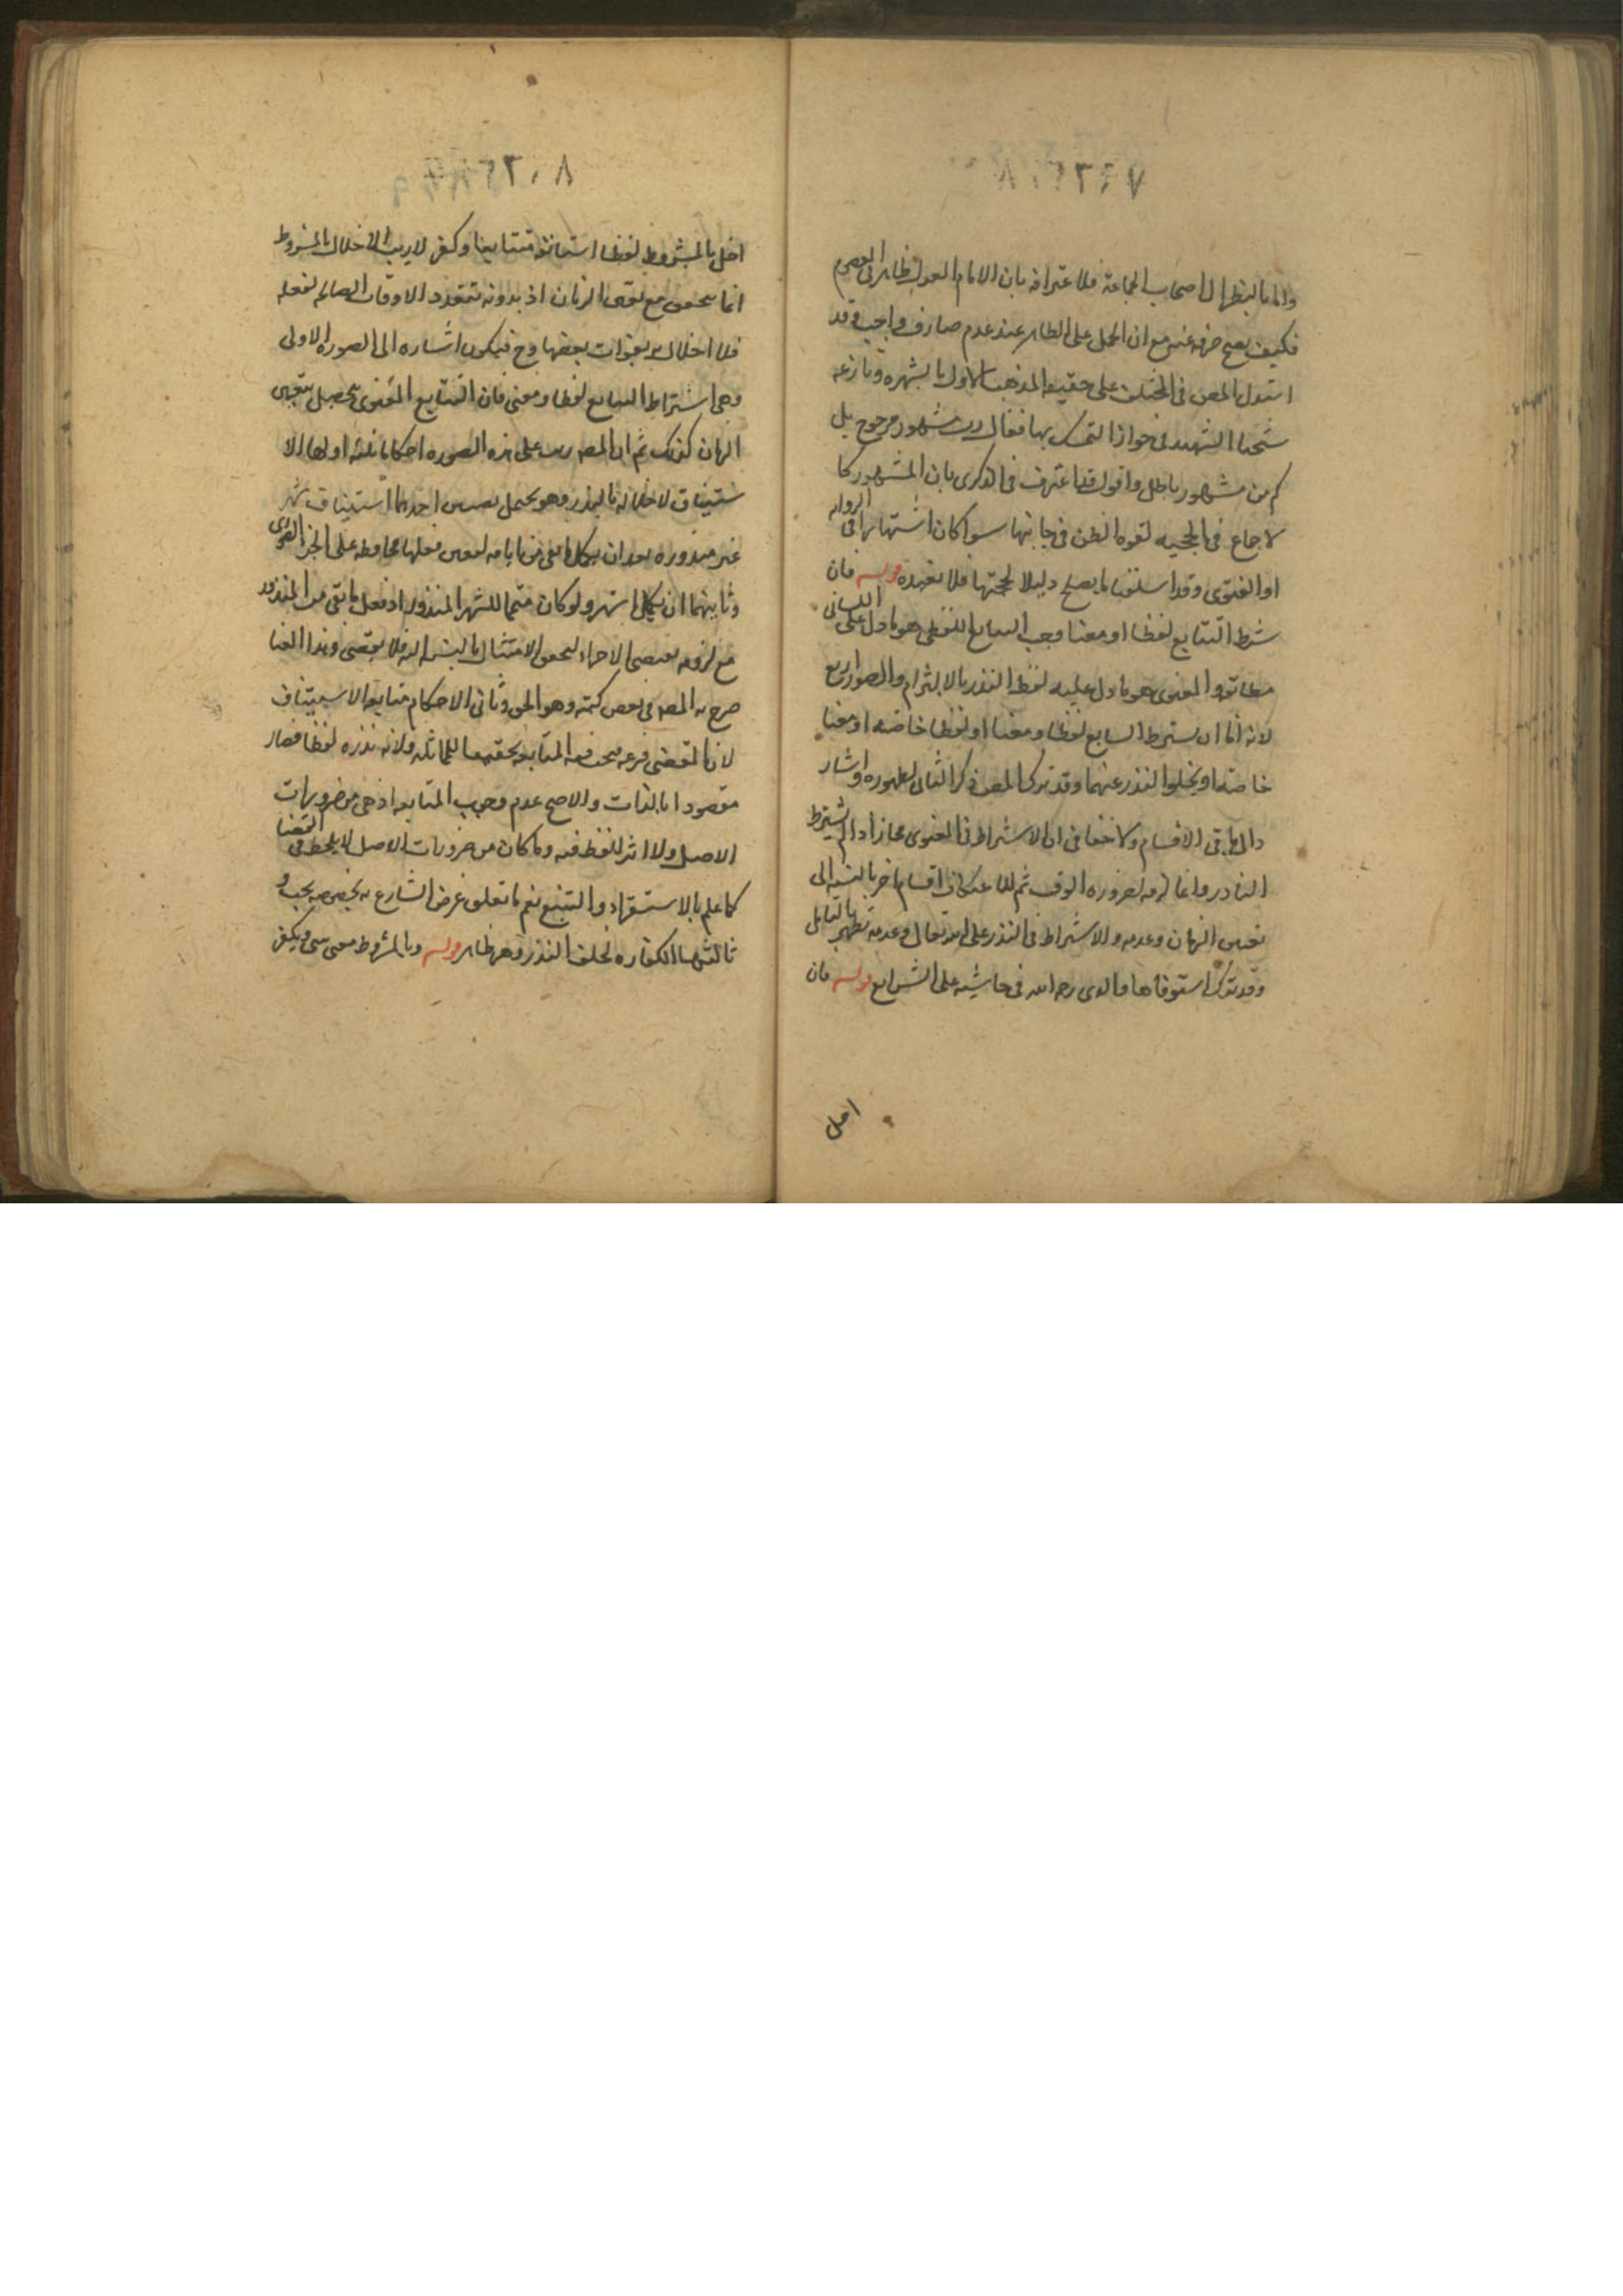 واما بالنظر الى اصحاب الجماعة فلاعترافه بان الامام العدل ظاهر في المعصوم
فكيف يصح صرفه عنه مع ان الحمل على الظاهر عند عدم صارف واجب وقد
استدل المص في المختلف على حقيه المذهب الاول بالشهره ونازعه
شيخنا الشهيد في جواز التمسك بها فقال رب مشهور مرجوح بل
كم من مشهور باطل واقول قد اعترف في الذكرى بان المشهور كا
لاجماع في الحجيه لقوه الظن في جانبها سوا كان اشتهارا في الروايه
او الفتوى وقد اسلفنا ما يصلح دليلا لحجتها فلا نعيده قوله فان
شرط التتابع لفظا او معنا وجب التتابع اللفظي هو ما دل على اللساني
مطابقه والمعنوى هو ما دل عليه لفظ النذر بالالتزام والصور اربع
لانه اما ان يشترط التتابع لفظا ومعنا او لفظا خاصه او معنا
خاصه او يخلوا النذر عنهما وقد ترك المص ذكر الثاني لظهوره واشار
الى باقي الاقسام ولا خفا في ان الاشتراط في المعنوى مجاز اذ لم يشترط
الناذر وانما لزمه لضروره الوقت ثم للاعتكاف اقسام اخر بالنسبه الى
تعين الزمان وعدمه والاشتراط في النذر على الله تعالى وعدمه تظهر بالتامل
وقد ترك استوفاها والدى رحمه الله في حاشيته على الشرايع قوله فان
اخل
٨
اخل بالمشروط لفظا استانف متتابعا وكفر لا ريب ان الاخلال بالمشروط
انما يتحقق مع تعين الزمان اذ بدونه تتعدد الاوقات الصالحه لفعله
فلا اخلال بفوات بعضها وح فيكون اشاره الى الصوره الاولى
وهي اشتراط التتابع لفظا ومعنى فان التتابع المعنوى يحصل بتعين
الزمان كذلك ثم ان المص رتب على هذه الصوره احكاما ثلثه اولها الا
ستيناف لاخلاله بالنذر وهو يحتمل معنيين احدهما استيناف شهر
غير منذوره بعد ان يكمل ما بقى من ايامه لتعين فعلها محافظه على الجزء الفورى
وثانيهما ان يكمل شهر ولو كان متمما للشهر المنذور اذ فعل ما بقى من المنذور
مع لزومه يقتضي الاجزاء لتحقق الامتثال بالنسبه اليه فلا يقضى وهذا المعنا
صرح به المص في بعض كتبه وهو الحق وثاني الاحكام متابعه الاستيناف
لان المقضى فرعه فتجب فيه المتابعه تحقيقا للمماثله ولانه نذره لفظا فصار
مقصودا بالذات والاصح عدم وجوب المتابعه اذ هي من ضروريات
الاصل ولا اثر للفظ فيه وما كان من ضروريات الاصل لا يلحظ في القضا
كما علم بالاستقراء والتتبع نعم ما تعلق غرض الشارع به بخصوصه يجب و
ثالثها الكفاره لخلف النذر وهو ظاهر قوله وبالمشروط معنى يبنى ويكفر